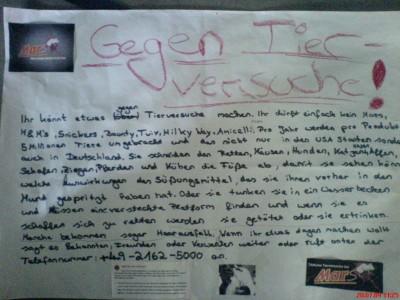 Gegen Tier-
versuche!
gegen
Ihr könnt etwas Tierversuche machen. Ihr dürft einfach kein Mars,
M&M's, Snickers, Bounty, Twix, Milky Way, Anicelli. Pro Jahr werden pro Produkt
5 Millionen Tiere umgebracht und das nicht nur in den USA Staaten sondern
auch in Deutschland. Sie schneiden den Ratten, Mäusen, Hunden, Katzen, Affen,
Schafen, Ziegen, Pferden und Kühen die Füße ab, damit sie sehen können
welche Auswirkungen das Süßungsmittel, das sie ihnen vorher in den
Mund gespritzt haben hat. Oder sie tunken sie in ein Wasserbecken
und müssen eine versteckte Plattform finden und wenn sie es
schaffen sich zu retten werden sie getötet oder sie ertrinken.
Manche bekommen sogar Haarausfall. Wenn ihr etwas dagen machen wollt
sagt es Bekannten, Freunden oder Verwanten weiter oder ruft unter der
Telefonnummer: +49-2162-5000 an.
Mars
Mars